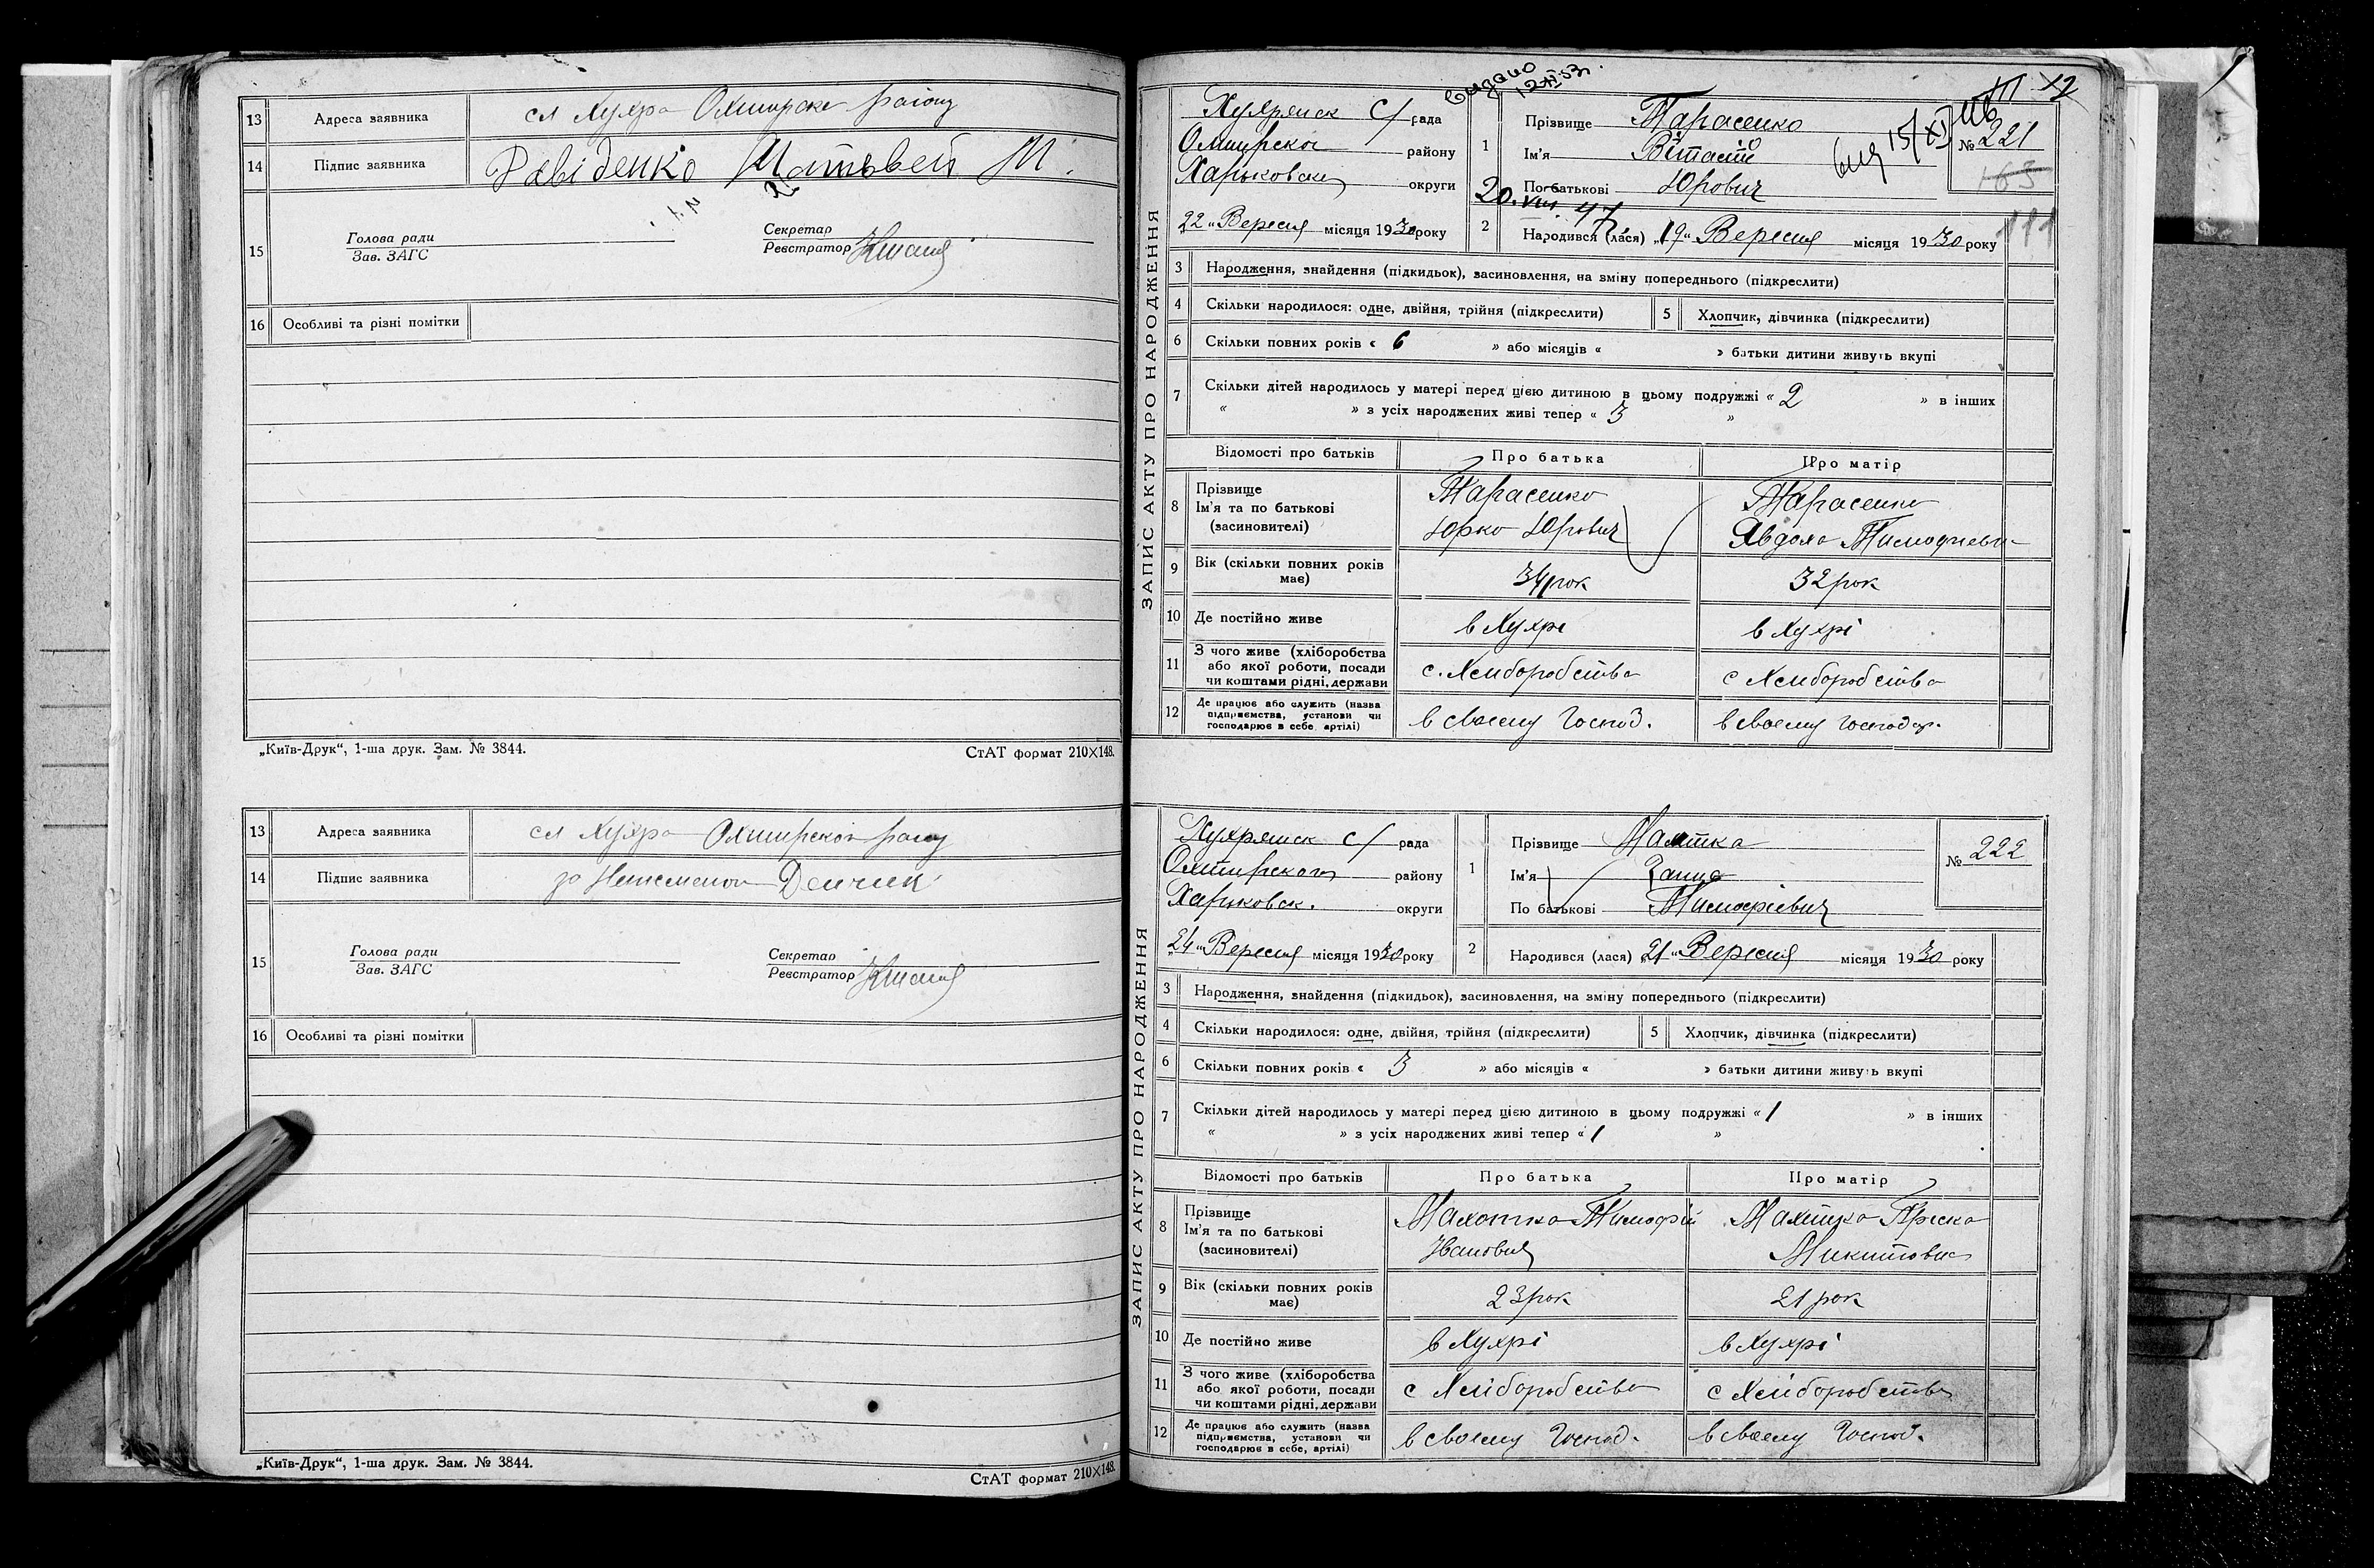 13 Адреса заявника сл Хухра Охтирско району
14 Підпис заявника Давіденко Матьвей М.
15 Голова ради
Зав. ЗАГС
Секретар
Реєстратор
16 Особливі та різні помітки
„Київ-Друк“, 1-ша друк. Зам. № 3844. СтАТ формат 210×148.
13 Адреса заявника сл Хухра Охтирского району
14 Підпис заявника за
15 Голова ради
Зав. ЗАГС
Секретар
Реєстратор
16 Особливі та різні помітки
„Київ-Друк“, 1-ша друк. Зам. № 3844. СтАТ формат 210×148.
ЗАПИС АКТУ ПРО НАРОДЖЕННЯ
Видано
Хухрянск С/ рада
Охтирског району
Харьковськ округи
22 „ Вересня місяця 1930 року
1 Прізвище Тарасенко
Ім'я Віталій
По батькові Юрович
№ 221
163
20.VIII.47
2 Народився (лася) „19“ Вересня місяця 1930 року
3 Народження, знайдення (підкидьок), засиновлення, на зміну попереднього (підкреслити)
4 Скільки народилося: одне, двійня, трійня (підкреслити) 5 Хлопчик, дівчинка (підкреслити)
6 Скільки повних років « 6 » або місяців « » батьки дитини живуть вкупі
7 Скільки дітей народилось у матері перед цією дитиною в цьому подружжі « 2 » в інших
« » з усіх народжених живі тепер « 3 »
Відомості про батьків Про батька Про матір
8 Прізвище
Ім'я та по батькові
(засиновителі)
Тарасенко
Юрко Юрович
Тарасенко
Явдоха Тимофіевн
9 Вік (скільки повних років має) 34 рок 32 рок
10 Де постійно живе в Хухрі в Хухрі
11 З чого живе (хліборобства
або якої роботи, посади
чи коштами рідні, держави
с. Хліборобства с Хліборобства
12 Де працює або служить (назва
підприємства, установи чи
господарює в себе, артілі)
в своему Господ. в своему господар.
ЗАПИС АКТУ ПРО НАРОДЖЕННЯ
Хухрянск С/ рада
Охтирського району
Харьковск. округи
„24„ Вересня місяця 1930 року
1 Прізвище Махотка
Ім'я Ганна
По батькові Тимофіевич
№ 222
2 Народився (лася) „21“ Вересня місяця 1930 року
3 Народження, знайдення (підкидьок), засиновлення, на зміну попереднього (підкреслити)
4 Скільки народилося: одне, двійня, трійня (підкреслити) 5 Хлопчик, дівчинка (підкреслити)
6 Скільки повних років « 3 » або місяців « » батьки дитини живуть вкупі
7 Скільки дітей народилось у матері перед цією дитиною в цьому подружжі « 1 » в інших
« » з усіх народжених живі тепер « 1 »
Відомості про батьків Про батька Про матір
8 Прізвище
Ім'я та по батькові
(засиновителі)
Махотка Тимофій
Іванович
Махотка Пріска
Микитовна
9 Вік (скільки повних років має) 23 рок 21 рок
10 Де постійно живе в Хухрі в Хухрі
11 З чого живе (хліборобства
або якої роботи, посади
чи коштами рідні, держави
с Хліборобства с Хліборобства
12 Де працює або служить (назва
підприємства, установи чи
господарює в себе, артілі)
в своему Господ. в своему Господ.